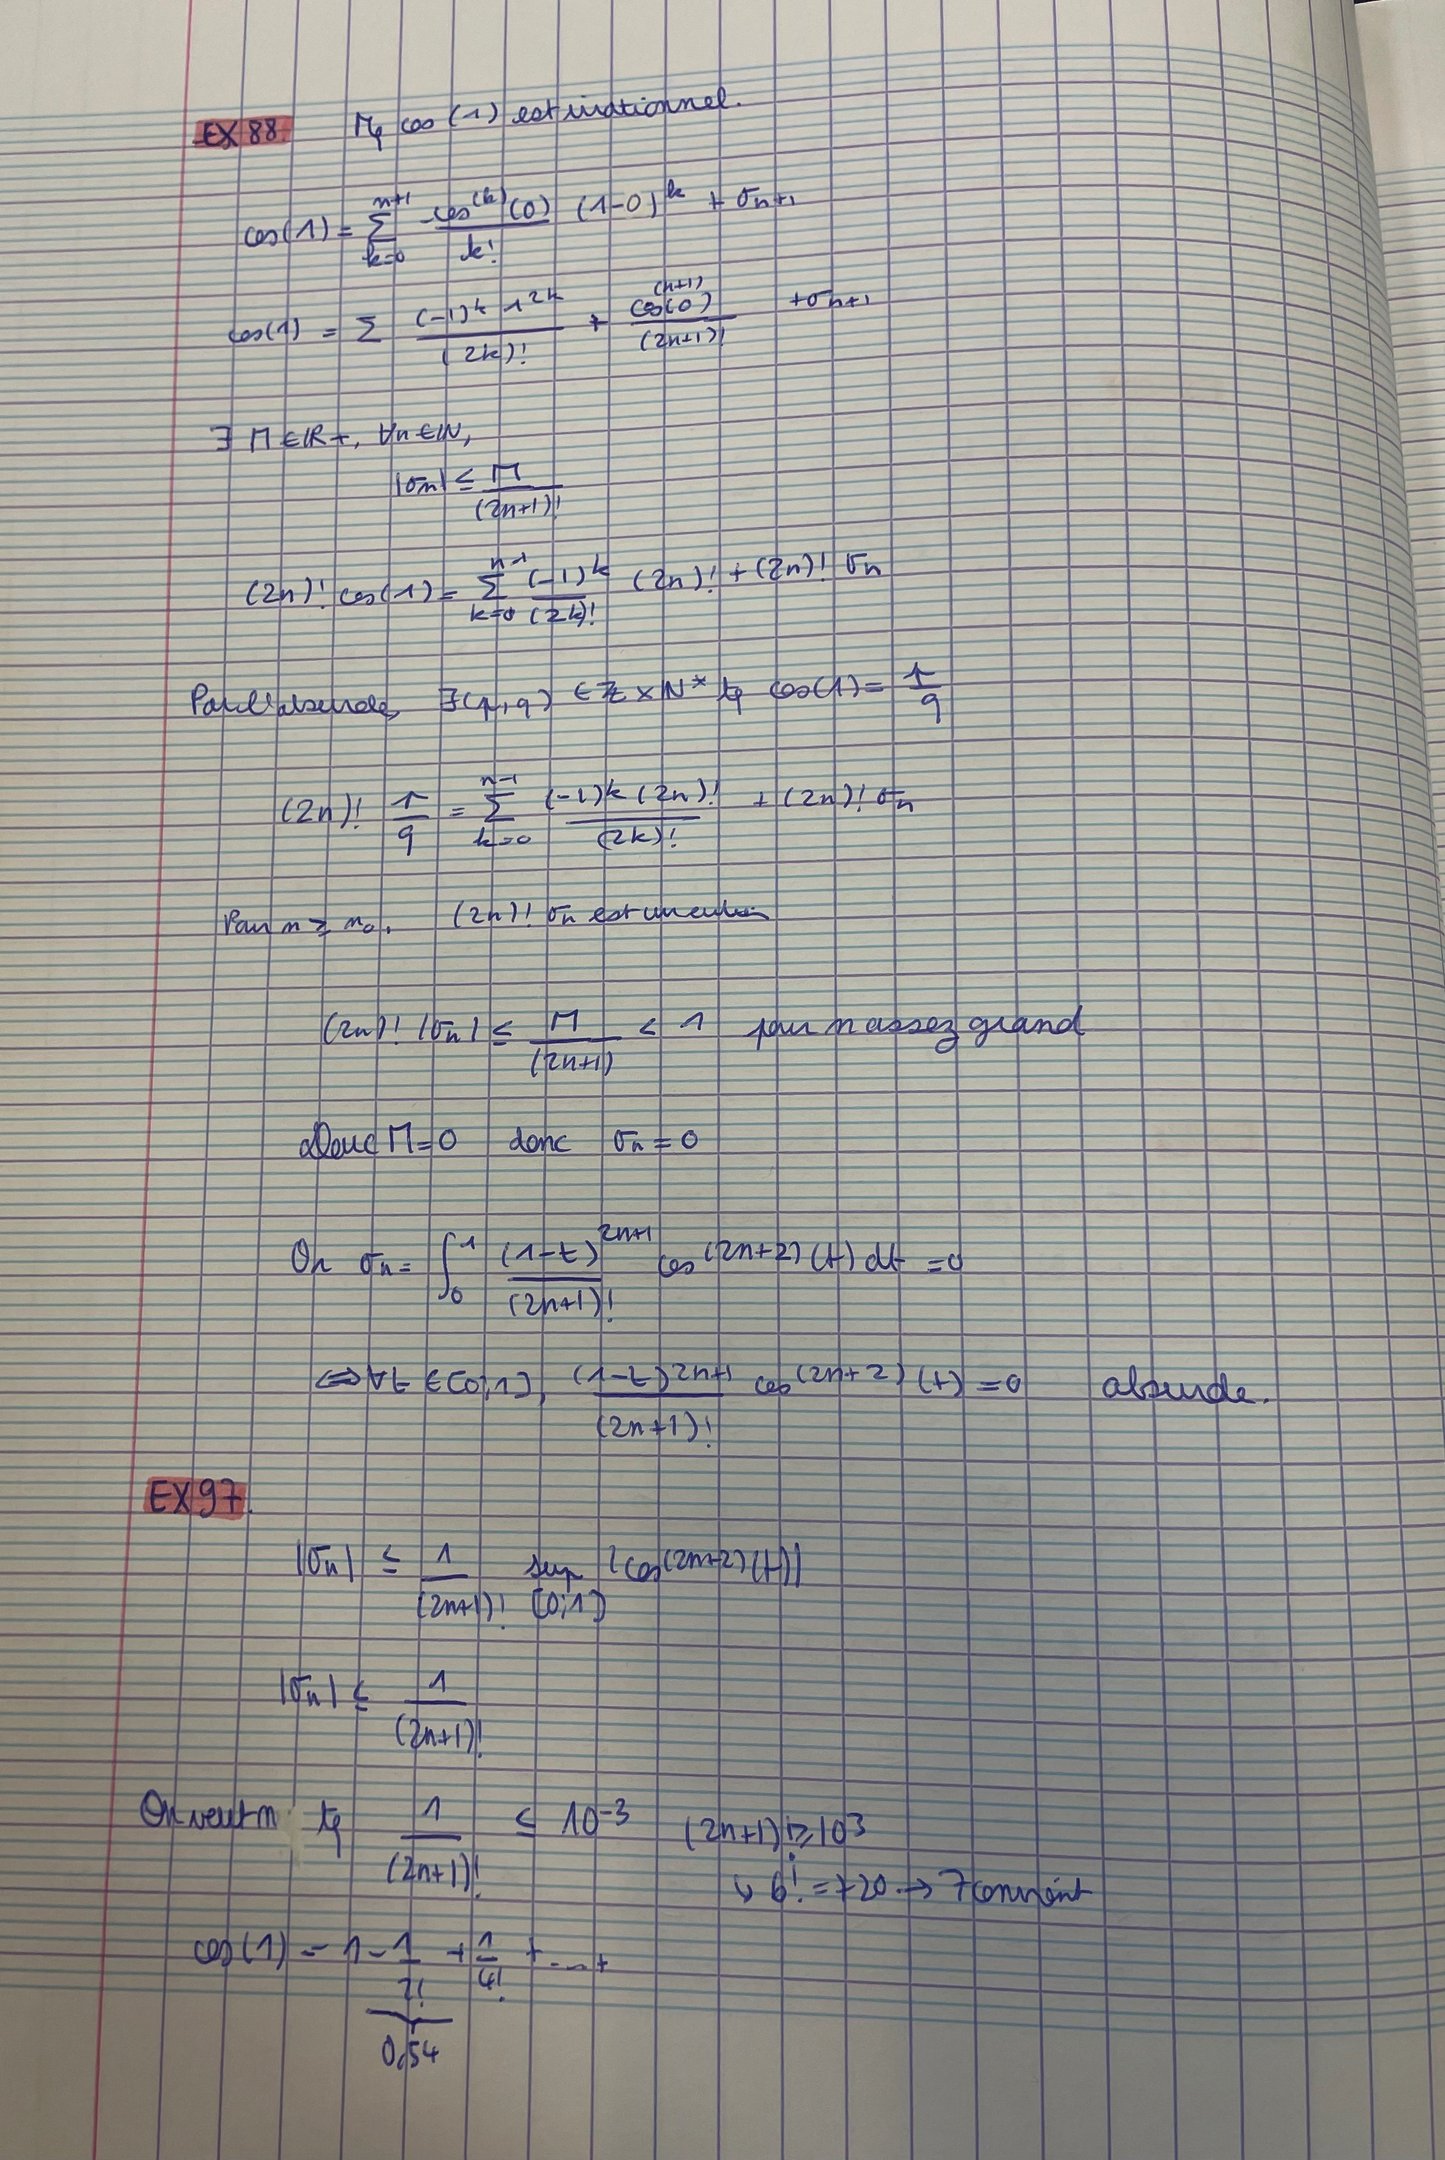 EX 88. Mq cos(1) est irrationnel.
cos(1) = ∑_{k=0}^{n+1} cos^{(k)}(0)/k! (1-0)^k + σ_{n+1}
cos(1) = ∑ (-1)^k 1^{2k}/(2k)! + cos^{(n+1)}(0)/(2n+1)! + σ_{n+1}
∃ M ∈ ℝ+, ∀n ∈ ℕ,
|σ_n| ≤ M/(2n+1)!
(2n)! cos(1) = ∑_{k=0}^{n-1} (-1)^k/(2k)! (2n)! + (2n)! σ_n
Par l'absurde, ∃(p,q) ∈ ℤ × ℕ* tq cos(1) = p/q
(2n)! p/q = ∑_{k=0}^{n-1} (-1)^k (2n)!/(2k)! + (2n)! σ_n
Pour n ≥ n_0, (2n)! σ_n est un entier
(2n)! |σ_n| ≤ M/(2n+1) < 1 pour n assez grand
Donc M = 0 donc σ_n = 0
Or σ_n = ∫_0^1 (1-t)^{2n+1}/(2n+1)! cos^{(2n+2)}(t) dt = 0
⇔ ∀t ∈ [0;1], (1-t)^{2n+1}/(2n+1)! cos^{(2n+2)}(t) = 0 absurde.
EX 97.
|σ_n| ≤ 1/(2n+1)! sup_{[0;1]} |cos^{(2n+2)}(t)|
|σ_n| ≤ 1/(2n+1)!
On veut n tq 1/(2n+1)! ≤ 10^{-3} (2n+1)! ≥ 10^3
↳ 6! = 720 → 7 convient
cos(1) = 1 - 1/2! + 1/4! + ... +
0,54